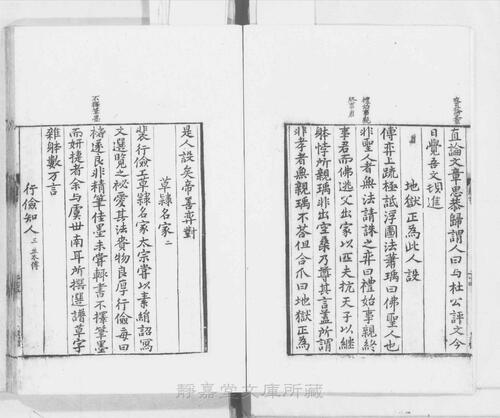 直論文章思恭歸謂人曰与杜公評文今
日覺吾文頓進
地獄正為此人設
傅弈上疏極詆浮圖法蕭瑀曰佛聖人也
禮始事親
終事君
非聖人者無法請誅之弈曰禮始事親終
事君而佛逃父出家以匹夫抗天子以継
躰悖所親瑀非出空桑乃尊其言蓋所謂
非孝者無親瑀不荅但合爪曰地獄正為
是人設矣帝善弈對
草隷名家二
裴行儉工草隷名家太宗嘗以素絹詔冩
文選覧之祕愛其法賚物良厚行儉每曰
不擇筆墨
褚遂良非精筆佳墨未嘗輒書不擇筆墨
而妍捷者余与虞世南耳所撰選譜草字
雜躰數万言
行儉知人三並本傳
靜嘉堂文庫所藏